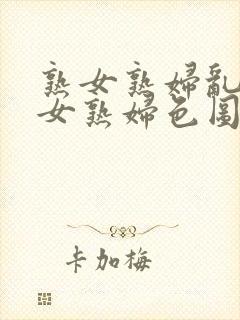 熟女熟婦亂
女熟婦色圖
卡加梅